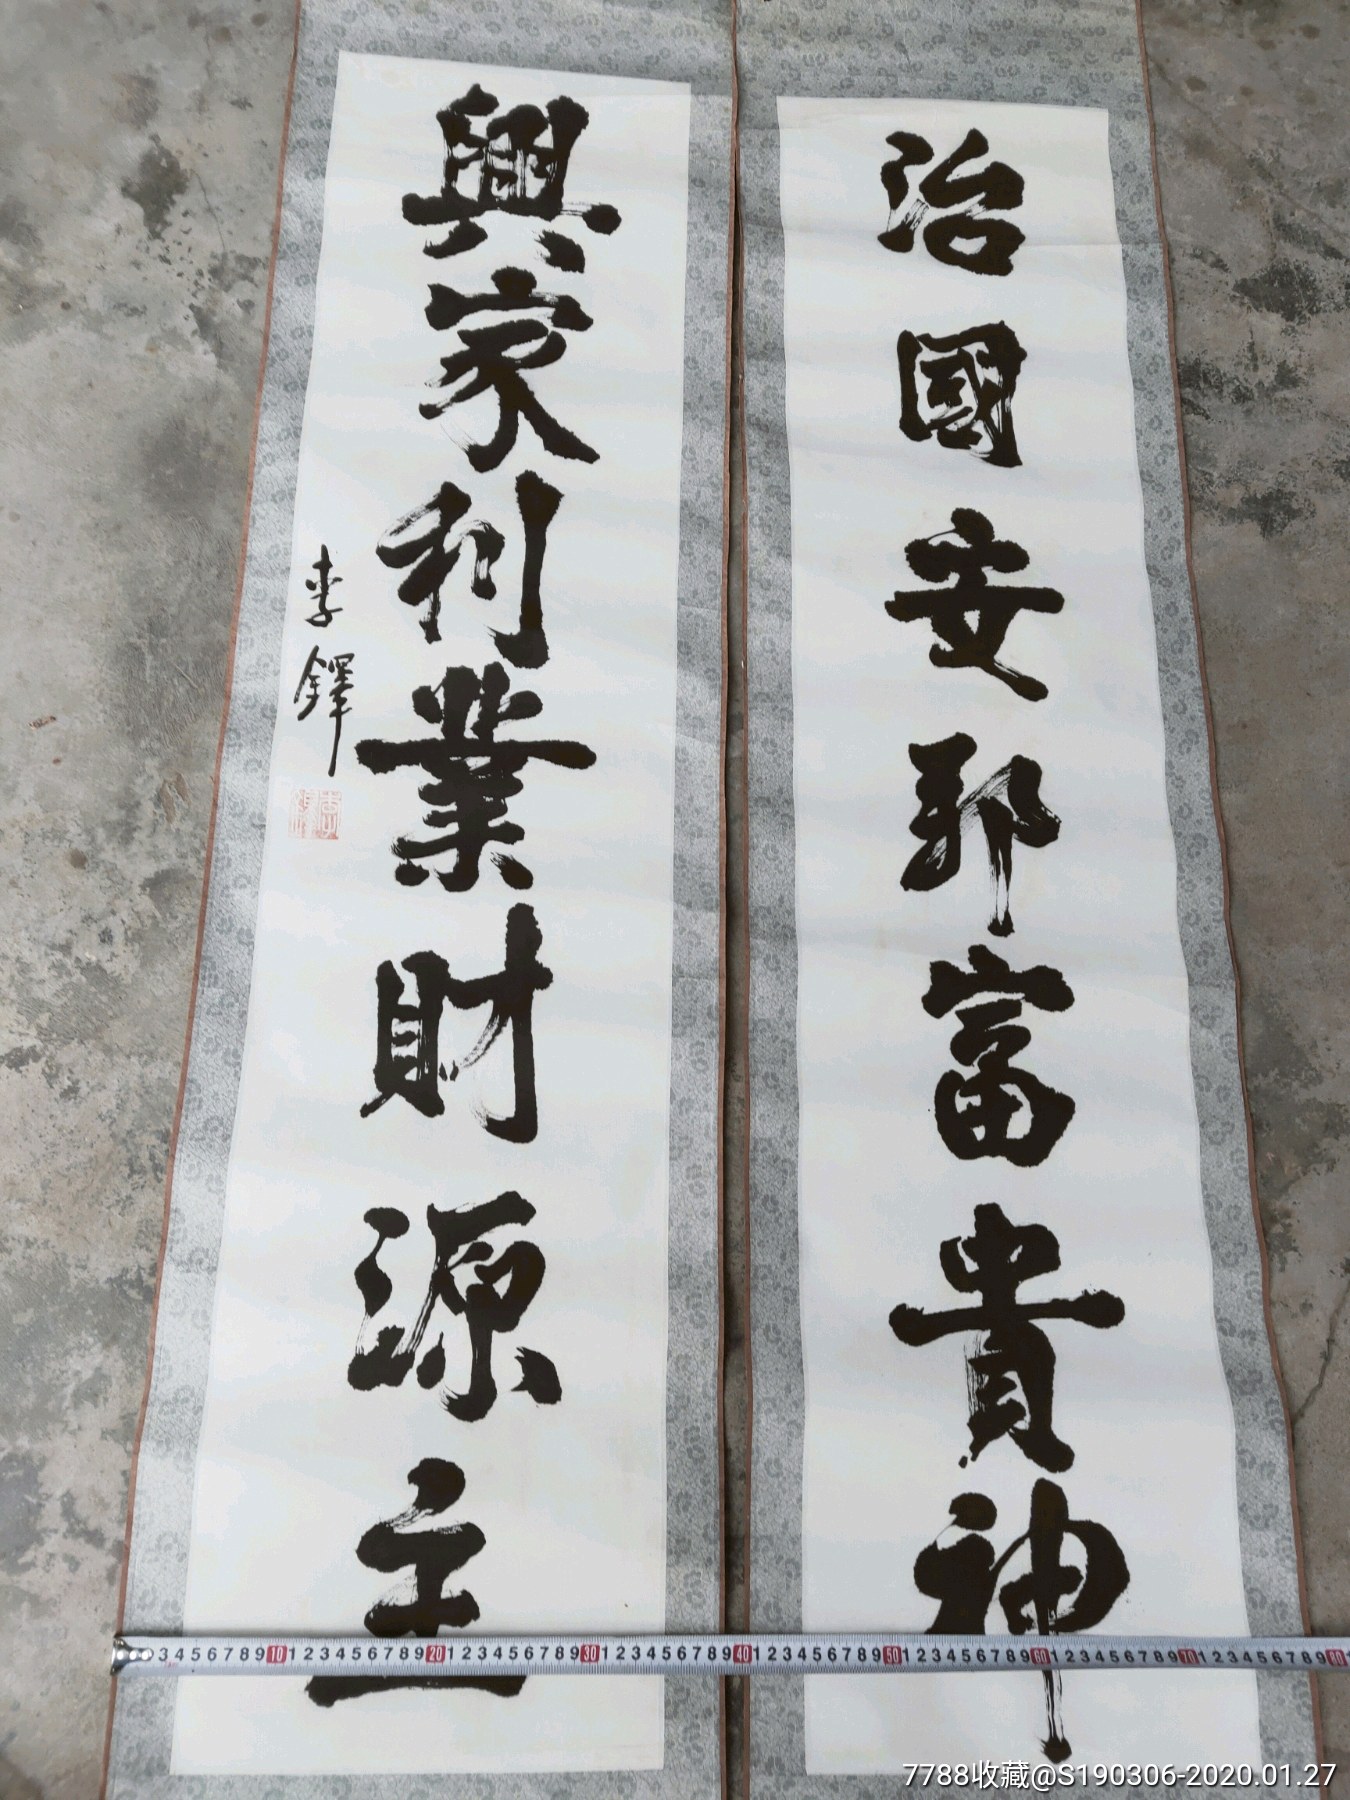 治國安邦富貴神
興家利業財源主
李鐸
李鐸
3 4 5 6 7 8 9 10 1 2 3 4 5 6 7 8 9 20 1 2 3 4 5 6 7 8 9 30 1 2 3 4 5 6 7 8 9 40 1 2 3 4 5 6 7 8 9 50 1 2 3 4 5 6 7 8 9 60 1 2 3 4 5 6 7 8 9 70 1 2 3 4 5 6 7 8 9 80
7788收藏@S190306-2020.01.27